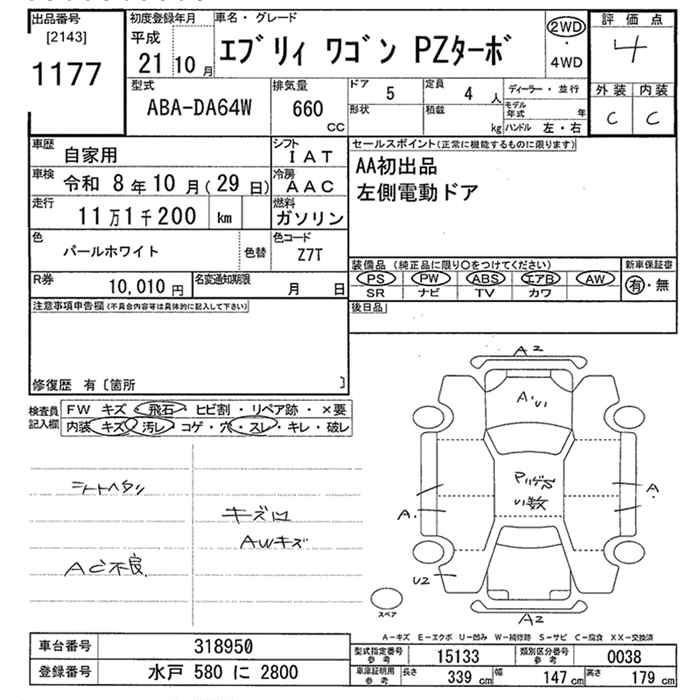 出品番号
[2143]
1177
初度登録年月
平成
21 10 月
車名・グレード
エブリィ ワゴン PZターボ
2WD
・
4WD
評価点
4
外装 内装
C C
型式
ABA-DA64W
排気量
660
CC
ドア 5
定員 4 人
形状
積載 kg
ディーラー・並行
モデル年式 年
ハンドル 左・右
車歴 自家用
シフト IAT
車検 令和 8年10月(29日)
冷房 AAC
走行 11万1千200 km
燃料 ガソリン
色 パールホワイト
色替
色コード Z7T
R券 10,010 円
名変通知期限 月 日
セールスポイント(正常に機能するものに限ります)
AA初出品
左側電動ドア
装備品 (純正品に限り○をつけてください)
PS PW ABS エアB AW
SR ナビ TV カワ
新車保証書
有・無
後日品
注意事項申告欄(不具合内容等は具体的に記入して下さい)
修復歴 有〔箇所 〕
検査員記入欄
FW キズ・飛石・ヒビ割・リペア跡・×要
内装 キズ・汚レ・コゲ・穴・スレ・キレ・破レ
シートヘタリ
AC不良
キズ
AWキズ
A2
A.U1
U1数
A.
A.
U2
A2
スペア
A-キズ E-エクボ U-凹み W-補修跡 S-サビ C-腐食 XX-交換済
車台番号 318950
登録番号 水戸 580 に 2800
型式指定番号 参考 15133
類別区分番号 参考 0038
車庫証明用 参考 長さ 339 cm 幅 147 cm 高さ 179 cm